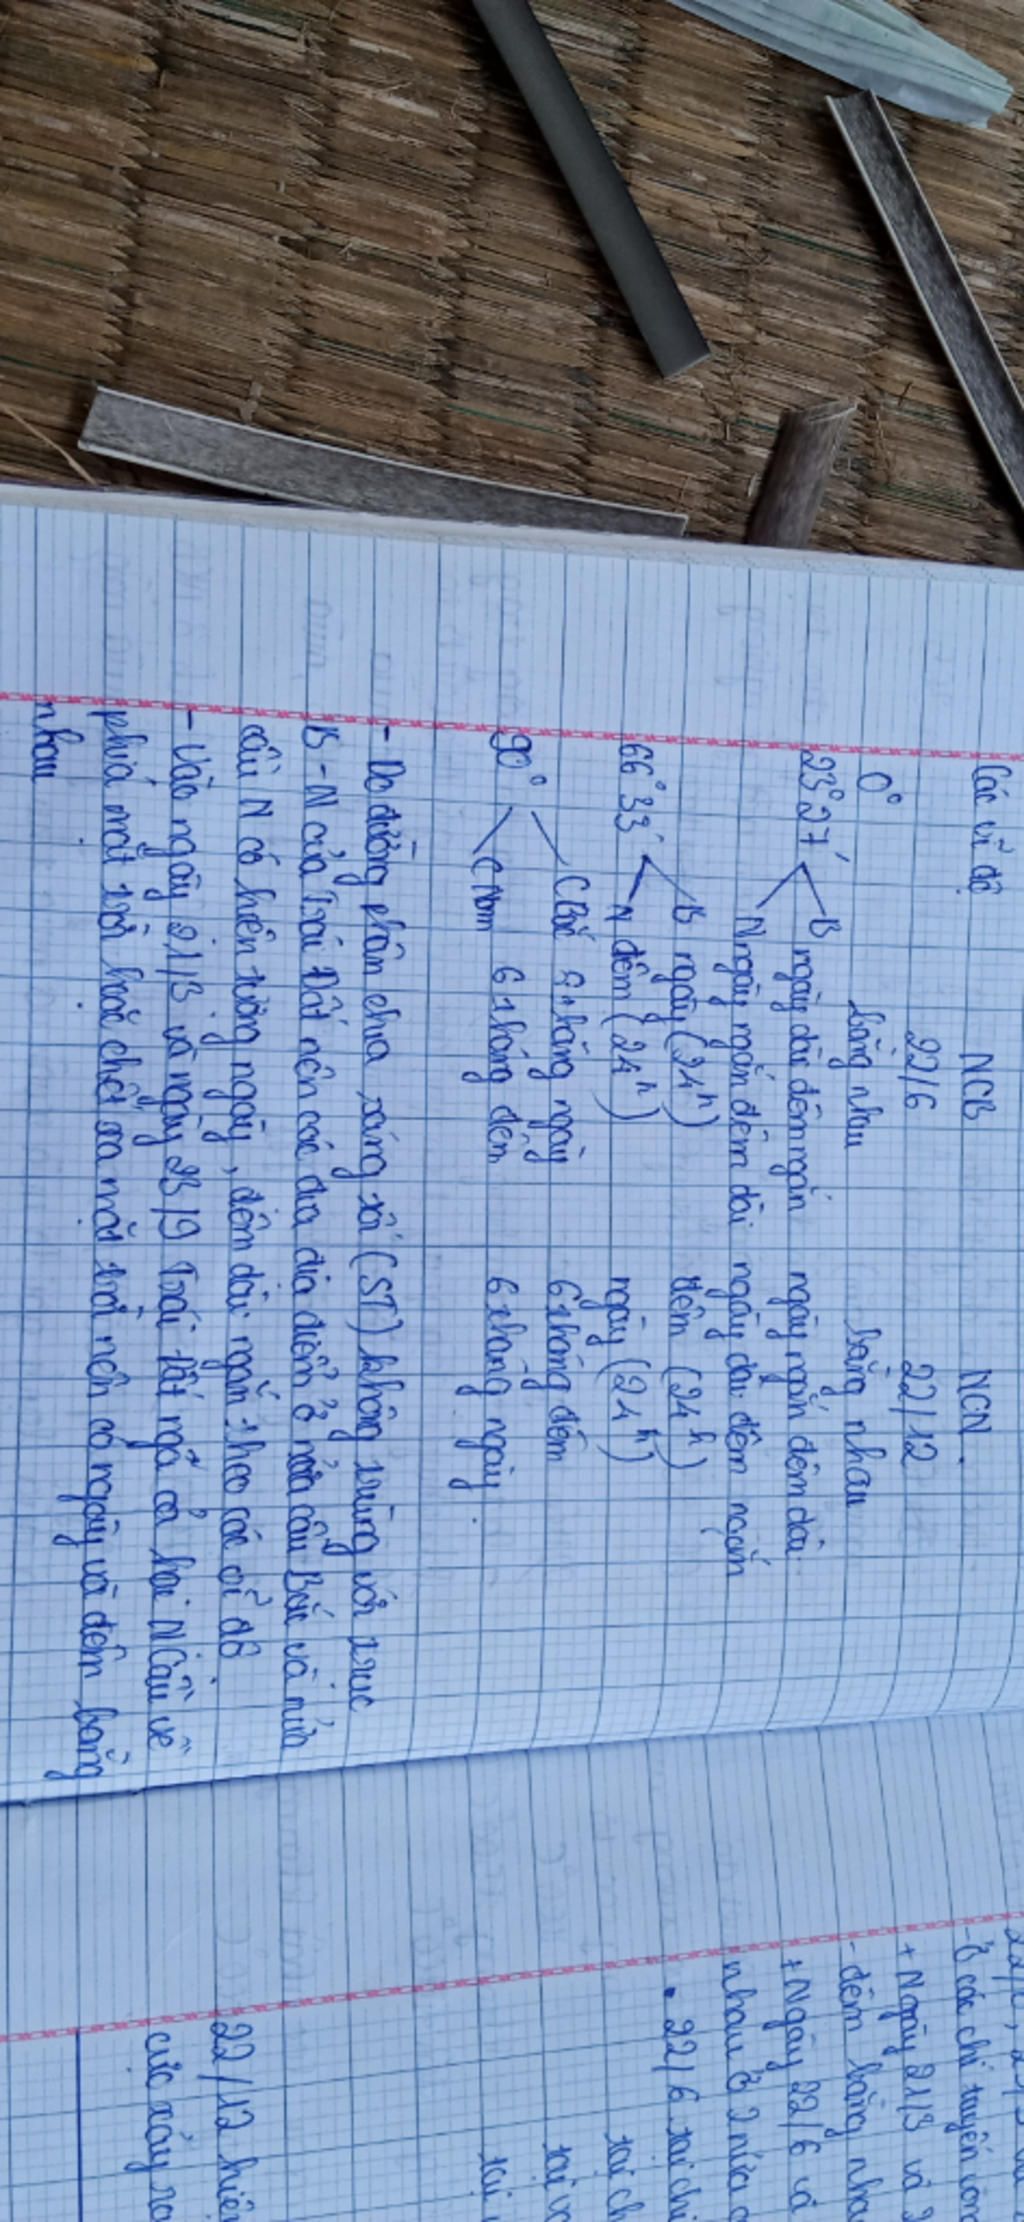 Các vĩ độ NCB NCN.
22/6 22/12
0° bằng nhau bằng nhau
23°27' B ngày dài đêm ngắn ngày ngắn đêm dài
N ngày ngắn đêm dài ngày dài đêm ngắn
B ngày (24h) đêm (24h)
66°33' N đêm (24h) ngày (24h)
CBắc 6 tháng ngày 6 tháng đêm
90° CNam 6 tháng đêm 6 tháng ngày.
- Do đường phân chia sáng tối (ST) không trùng với trục
B-N của Trái Đất nên các địa điểm ở nửa cầu Bắc và nửa
cầu N có hiện tượng ngày, đêm dài ngắn theo các vĩ độ
- Vào ngày 21/3 và ngày 23/9 Trái Đất ngả cả hai NCầu về
phía mặt trời hoặc chếch xa mặt trời nên có ngày và đêm bằng
nhau
- Ở các chí tuyến vòng
+ Ngày 21/3 và 2
- đêm bằng nhau
+ Ngày 22/6 và
nhau ở 2 nửa c
• 22/6 tại chí
tại ch
tại vò
tại
22/12 hiện
cực xảy ra